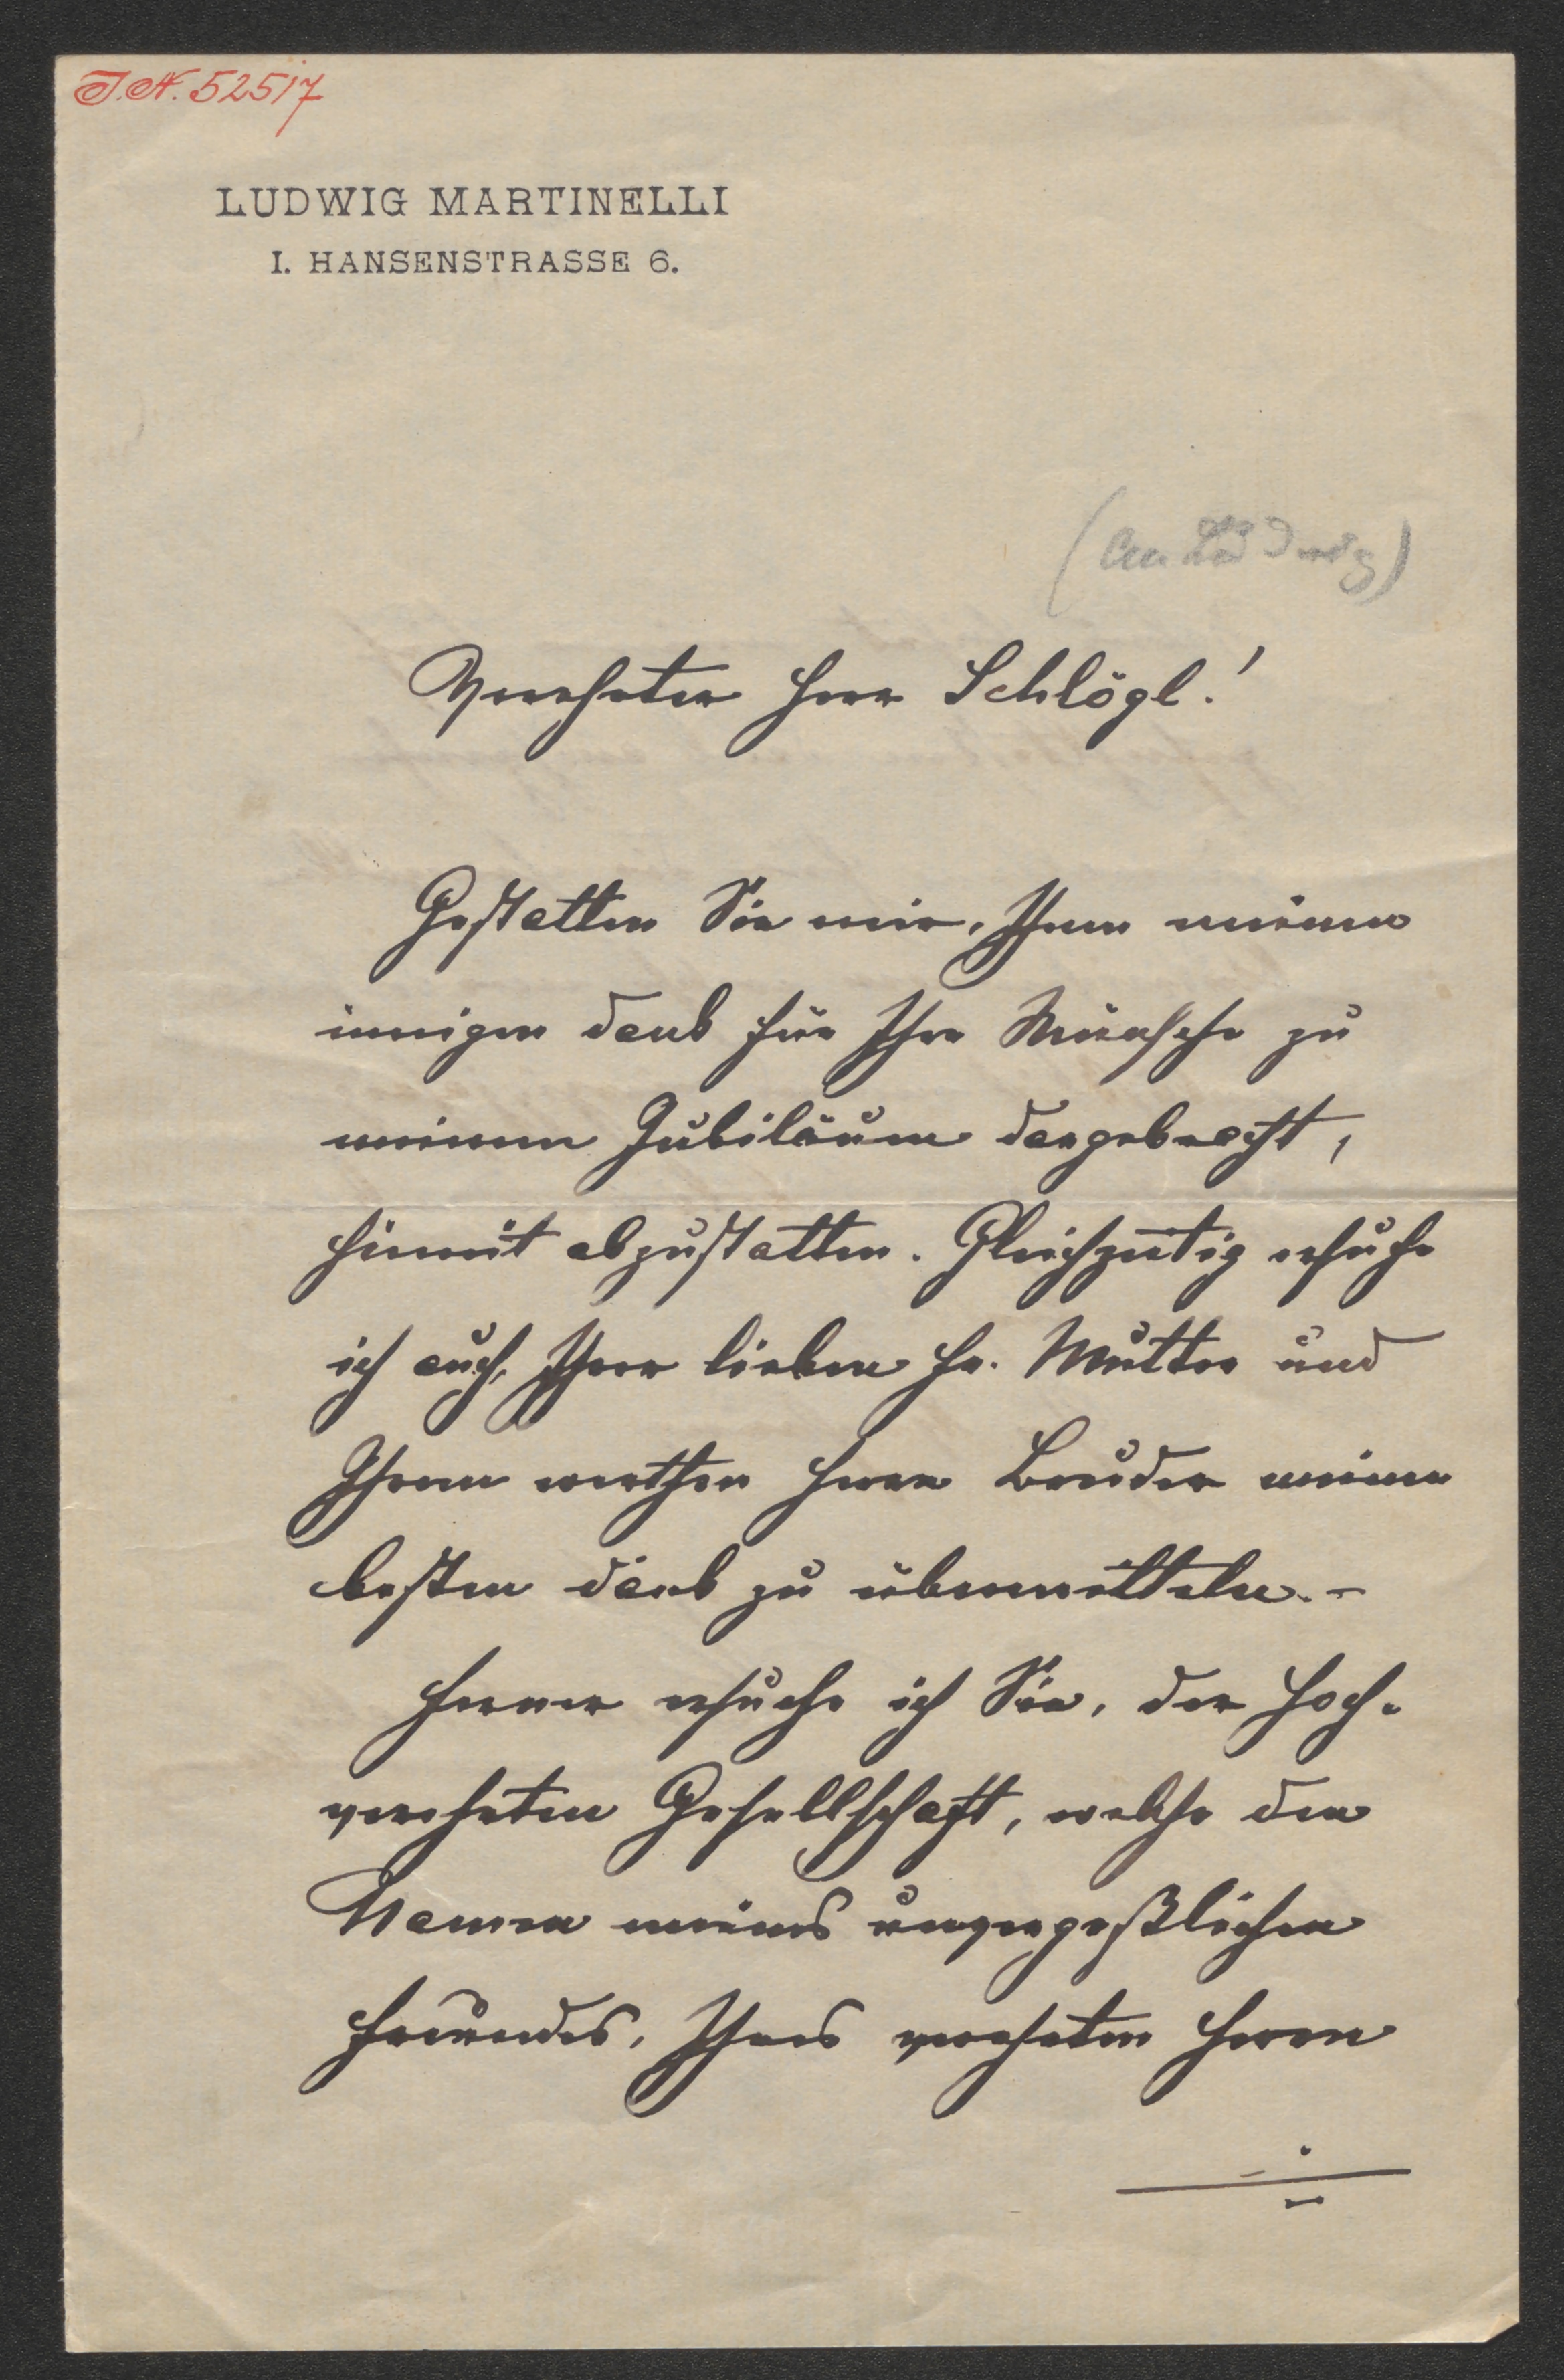 J.N. 52517
LUDWIG MARTINELLI
I. HANSENSTRASSE 6.
(An Ludwig)
Verehrter Herr Schlögl!
Gestatten Sie mir, Ihnen meinen
innigen Dank für Ihre Wünsche zu
meinem Jubiläum dargebracht,
hiemit abzustatten. Gleichzeitig ersuche
ich auch, Ihrer lieben Fr. Mutter und
Ihrem werthen Herrn Bruder meinen
besten Dank zu übermitteln. –
Ferner ersuche ich Sie, der hoch-
verehrten Gesellschaft, welche den
Namen meines unvergeßlichen
Freundes, Ihres verehrten Herrn